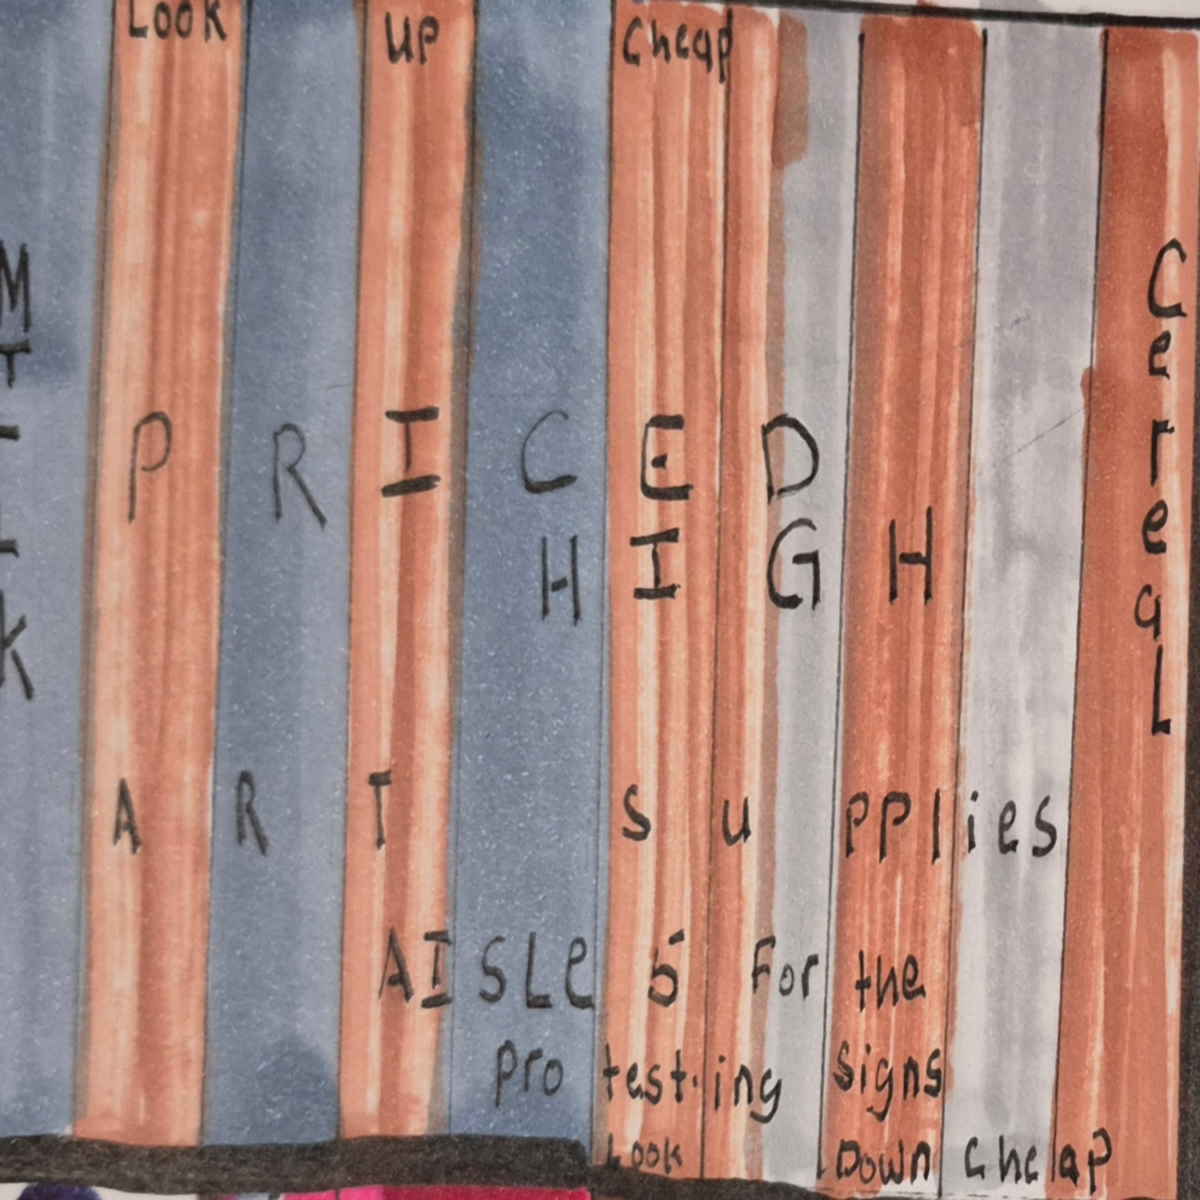 LOOK UP Cheap
MILK
PRICED
HIGH
CereaL
ART supplies
AISLe 5 For the
protesting signs
Look Down cheap